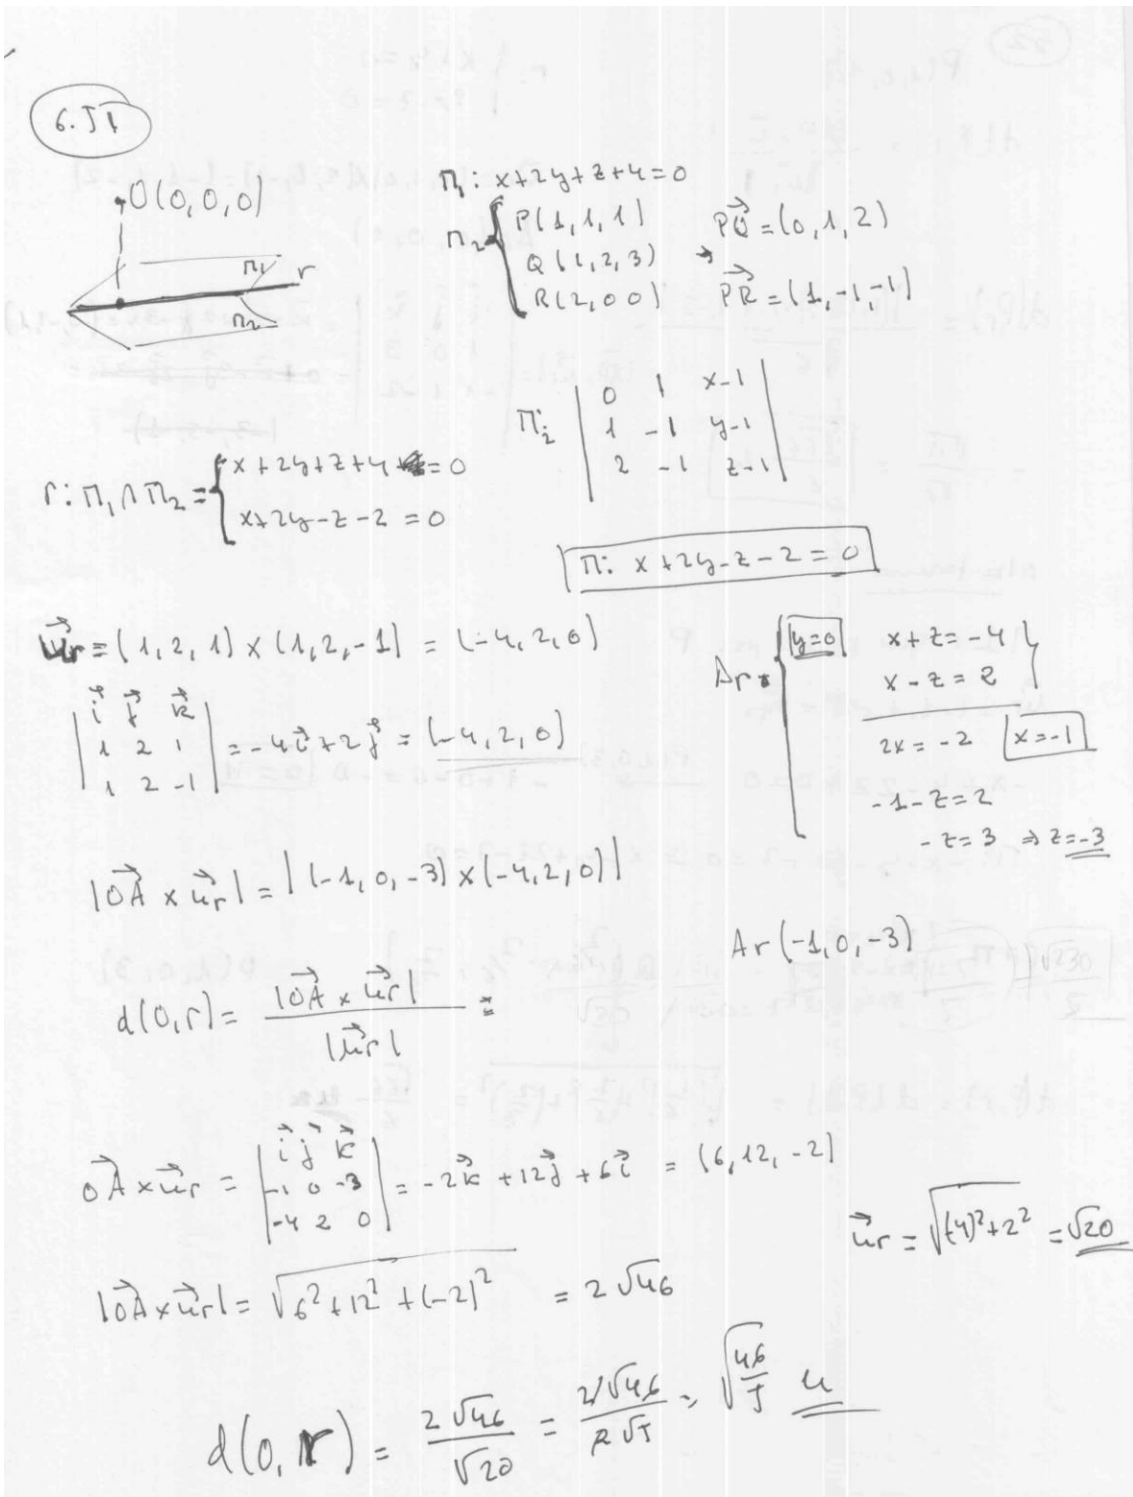 6.51
O(0,0,0)
π1
r
π2
π1: x+2y+z+4=0
π2 { P(1,1,1)
Q(1,2,3)
R(2,0 0)
→ PQ⃗ = (0,1,2)
PR⃗ = (1,-1-1)
π2: | 0 1 x-1 |
| 1 -1 y-1 |
| 2 -1 z-1 |
r: π1 ∩ π2 = { x+2y+z+4 =0
x+2y-z-2 =0
π: x+2y-z-2=0
u⃗r = (1,2,1) x (1,2,-1) = (-4,2,0)
| i⃗ j⃗ k⃗ |
| 1 2 1 | = -4i⃗+2j⃗ = (-4,2,0)
| 1 2 -1 |
Ar { y=0 x+z=-4 }
x-z=2
2x=-2 x=-1
-1-z=2
-z=3 ⇒ z=-3
|OA⃗ x u⃗r| = |(-1,0,-3) x (-4,2,0)|
Ar(-1,0,-3)
d(0,r) = |OA⃗ x u⃗r| / |u⃗r| =
OA⃗ x u⃗r = | i⃗ j⃗ k⃗ |
| -1 0 -3 | = -2k⃗ +12j⃗ +6i⃗ = (6,12,-2)
| -4 2 0 |
u⃗r = √(-4)²+2² = √20
|OA⃗ x u⃗r| = √6²+12²+(-2)² = 2√46
d(0,r) = 2√46 / √20 = 2√46 / 2√5 = √46/5 u